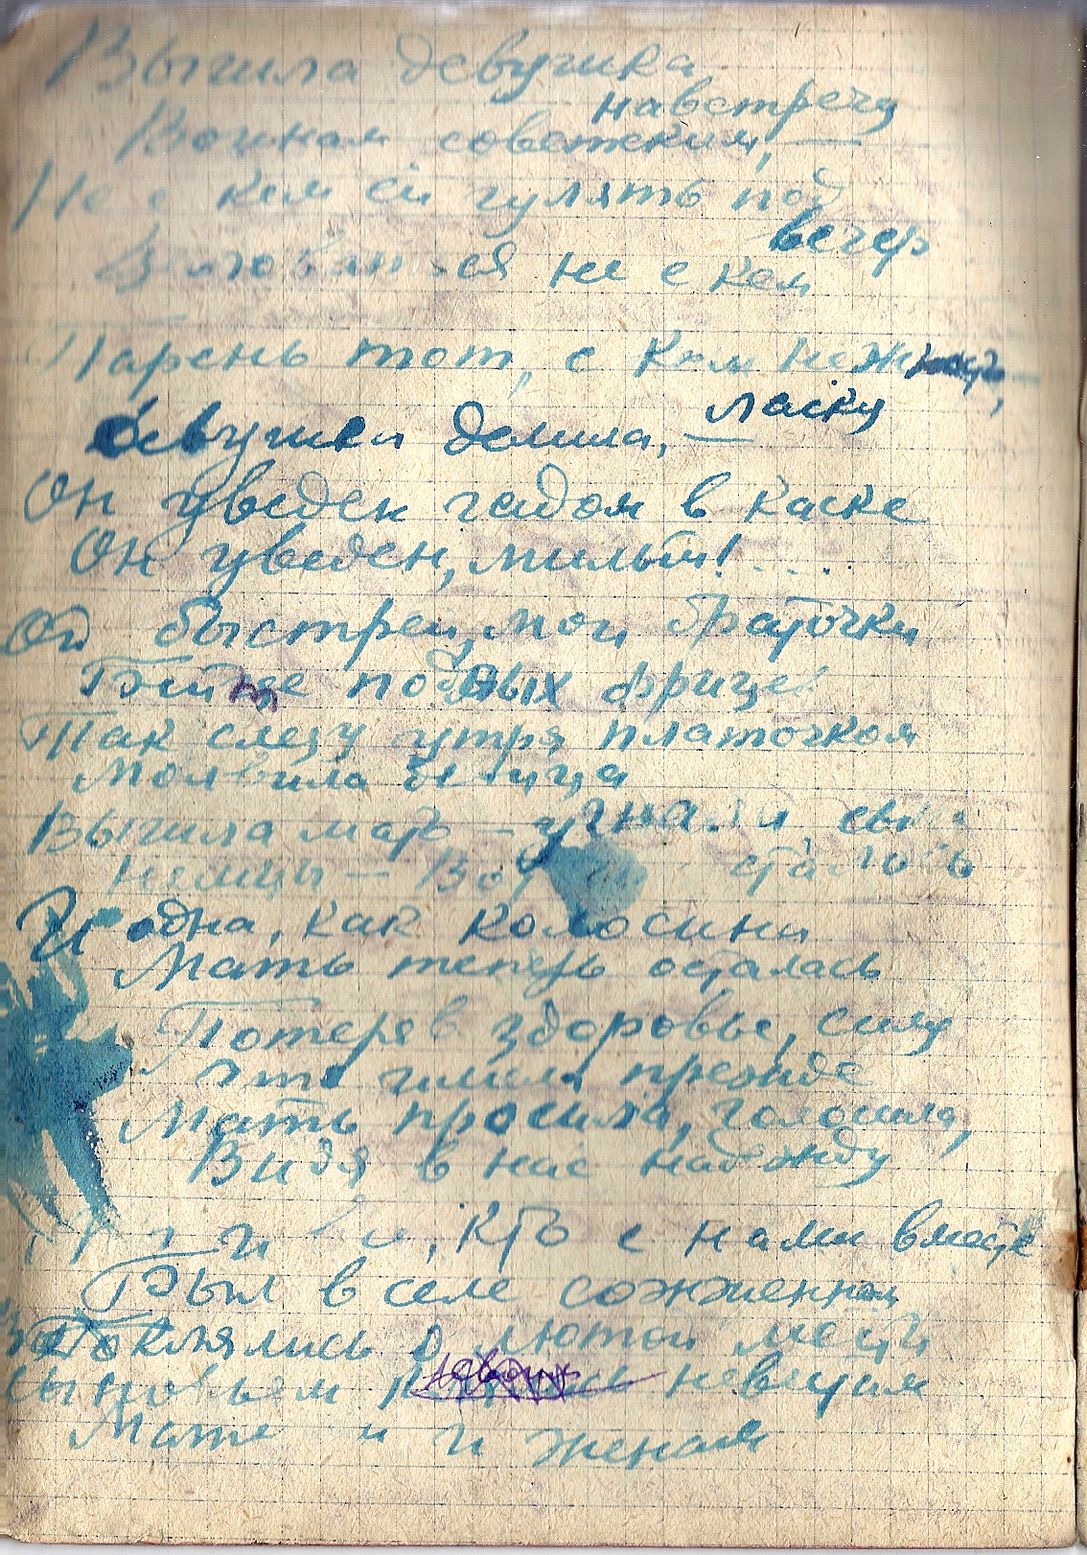 Вышла девушка
навстречу
Воинам советским, —
Не с кем ей гулять под
вечер
не с кем
Парень тот, с кем нежную
ласку,
Девушка делила, —
Он уведен гадом в каске
Он уведен, милый! ....
Ой быстрей, мои браточки
Бейте подлых фрицев
Так слезу утря платочком
Молвила девица
Вышла мать — угнали
немцы —
И одна, как колосина
Мать теперь осталась
Потеряв здоровье, силу
Что имела прежде
Мать просила, голосила,
Видя в нас надежду
и, кто с нами вместе
Был в селе сожженном
Поклялись о лютой мести
невестам
и женам